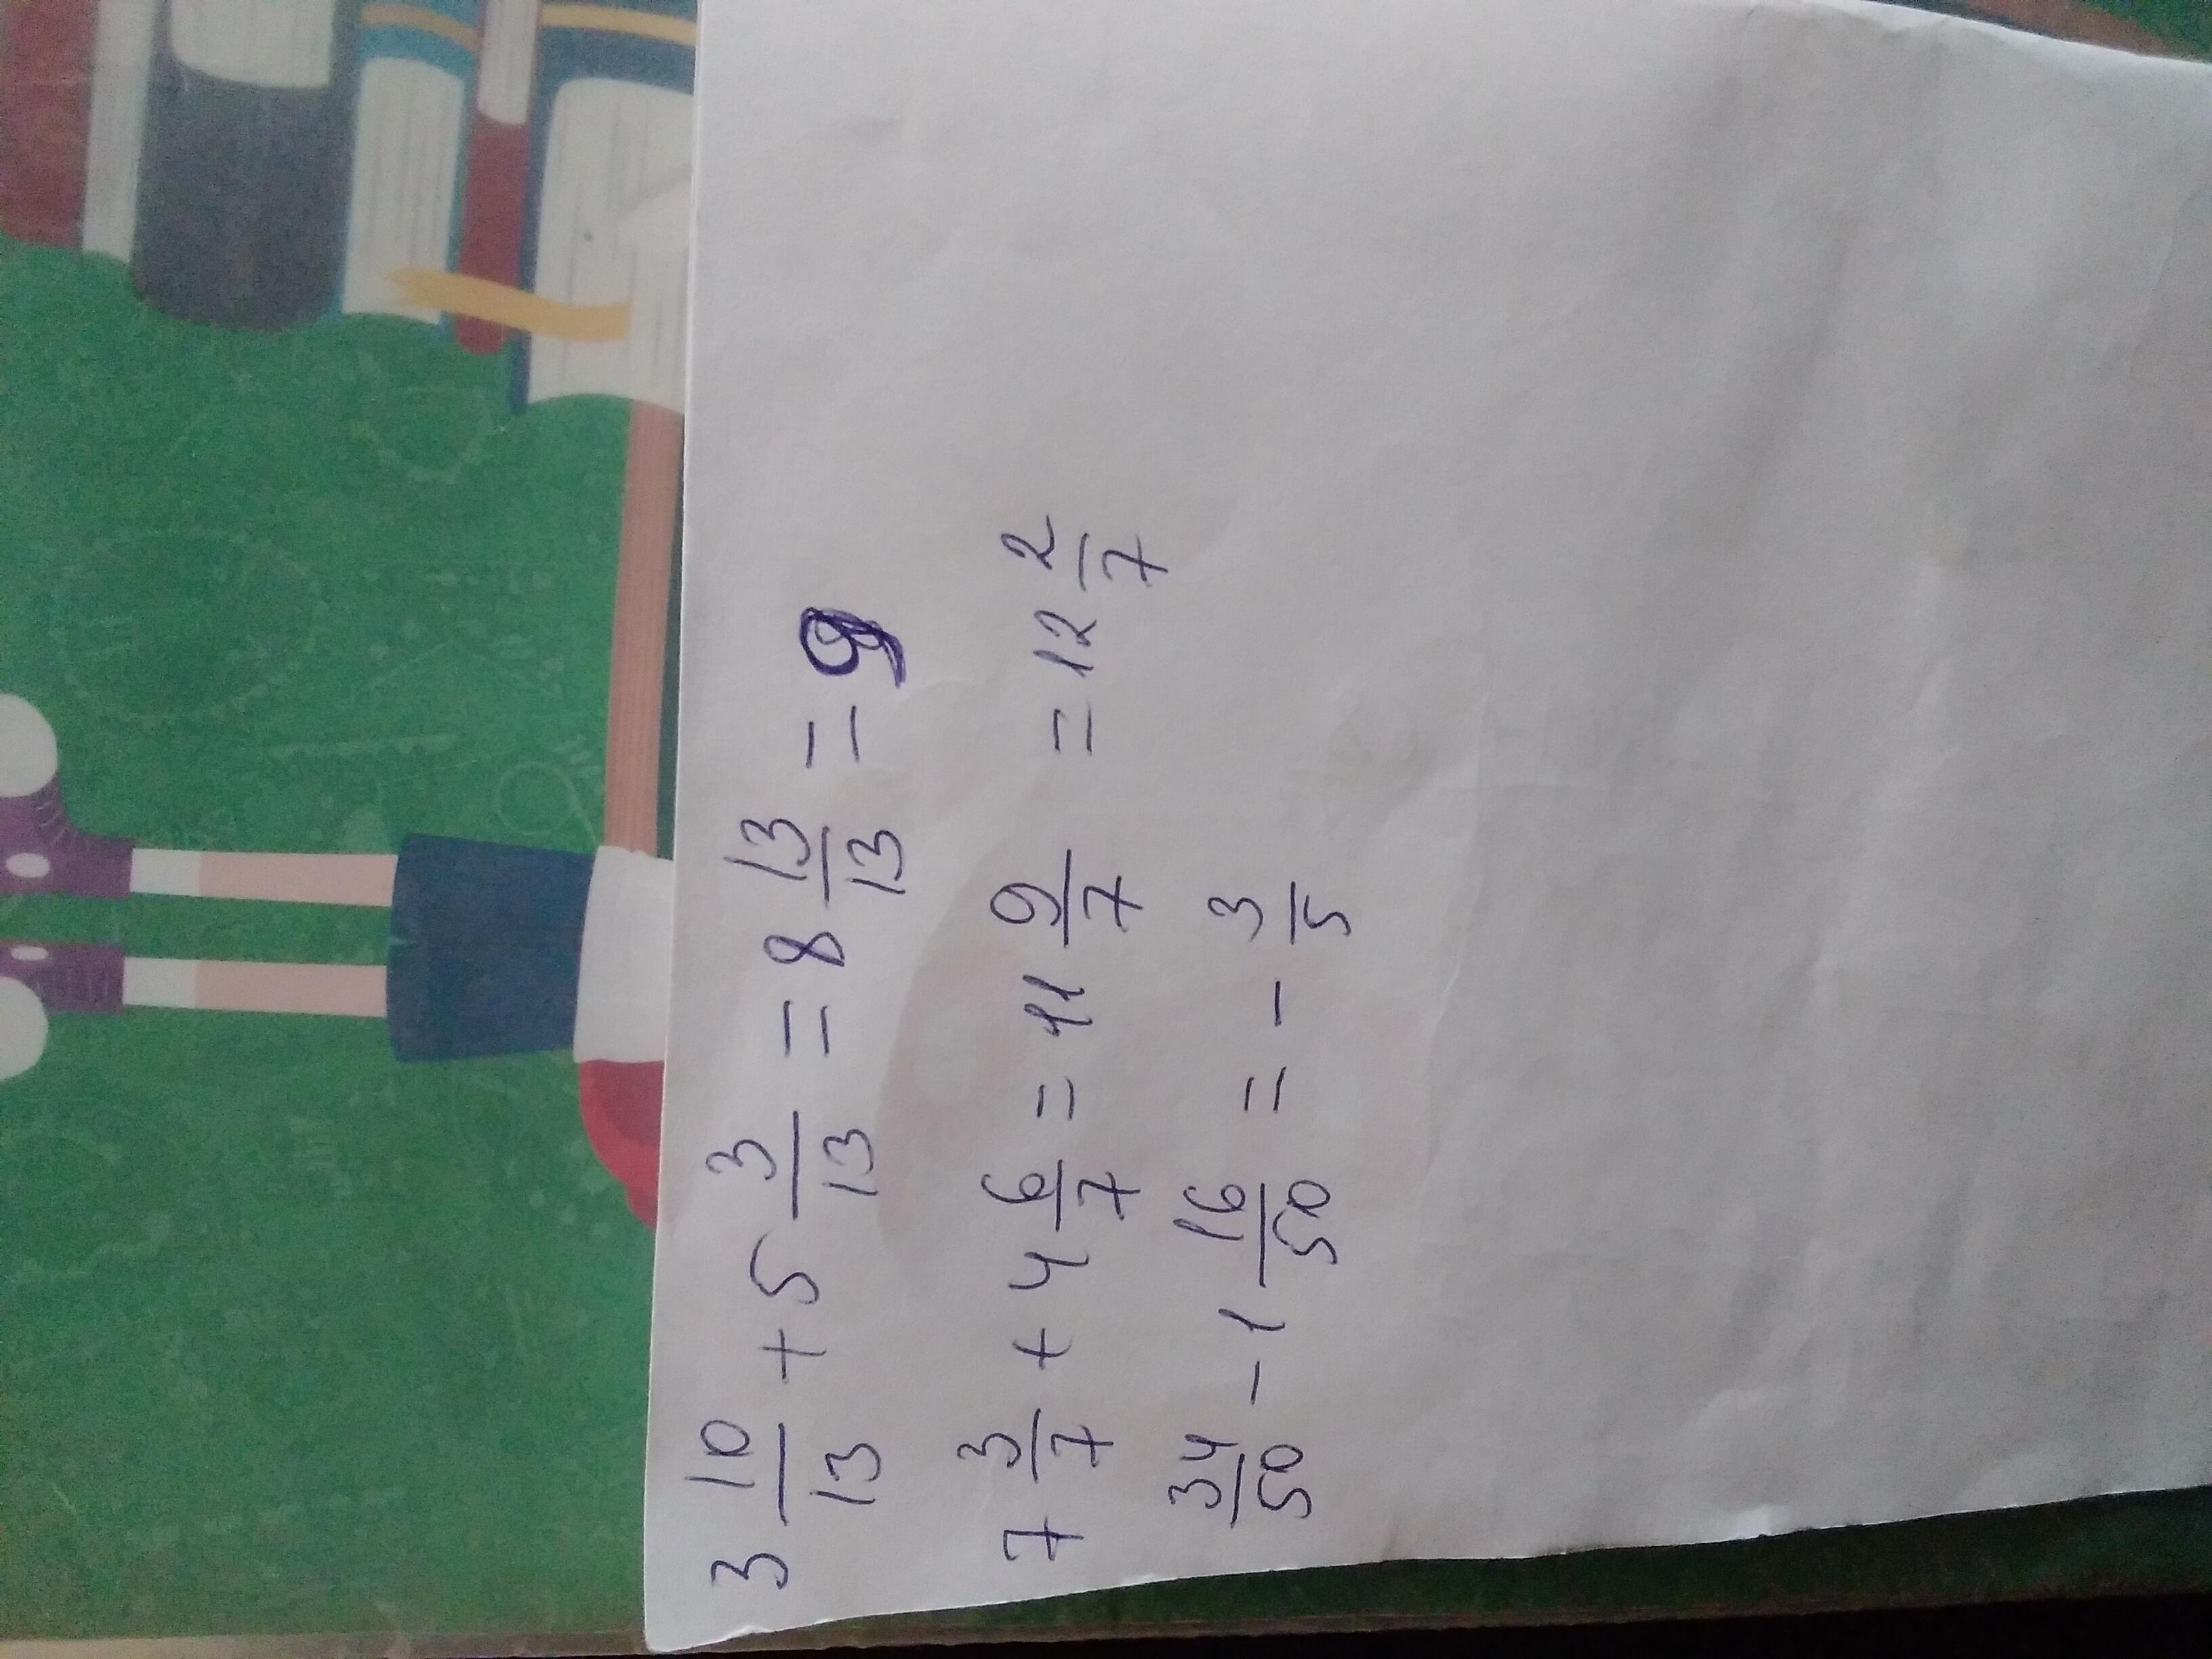 3 10/13 + 5 3/13 = 8 13/13 = 9
7 3/7 + 4 6/7 = 11 9/7 = 12 2/7
34/50 - 1 16/50 = - 3/5